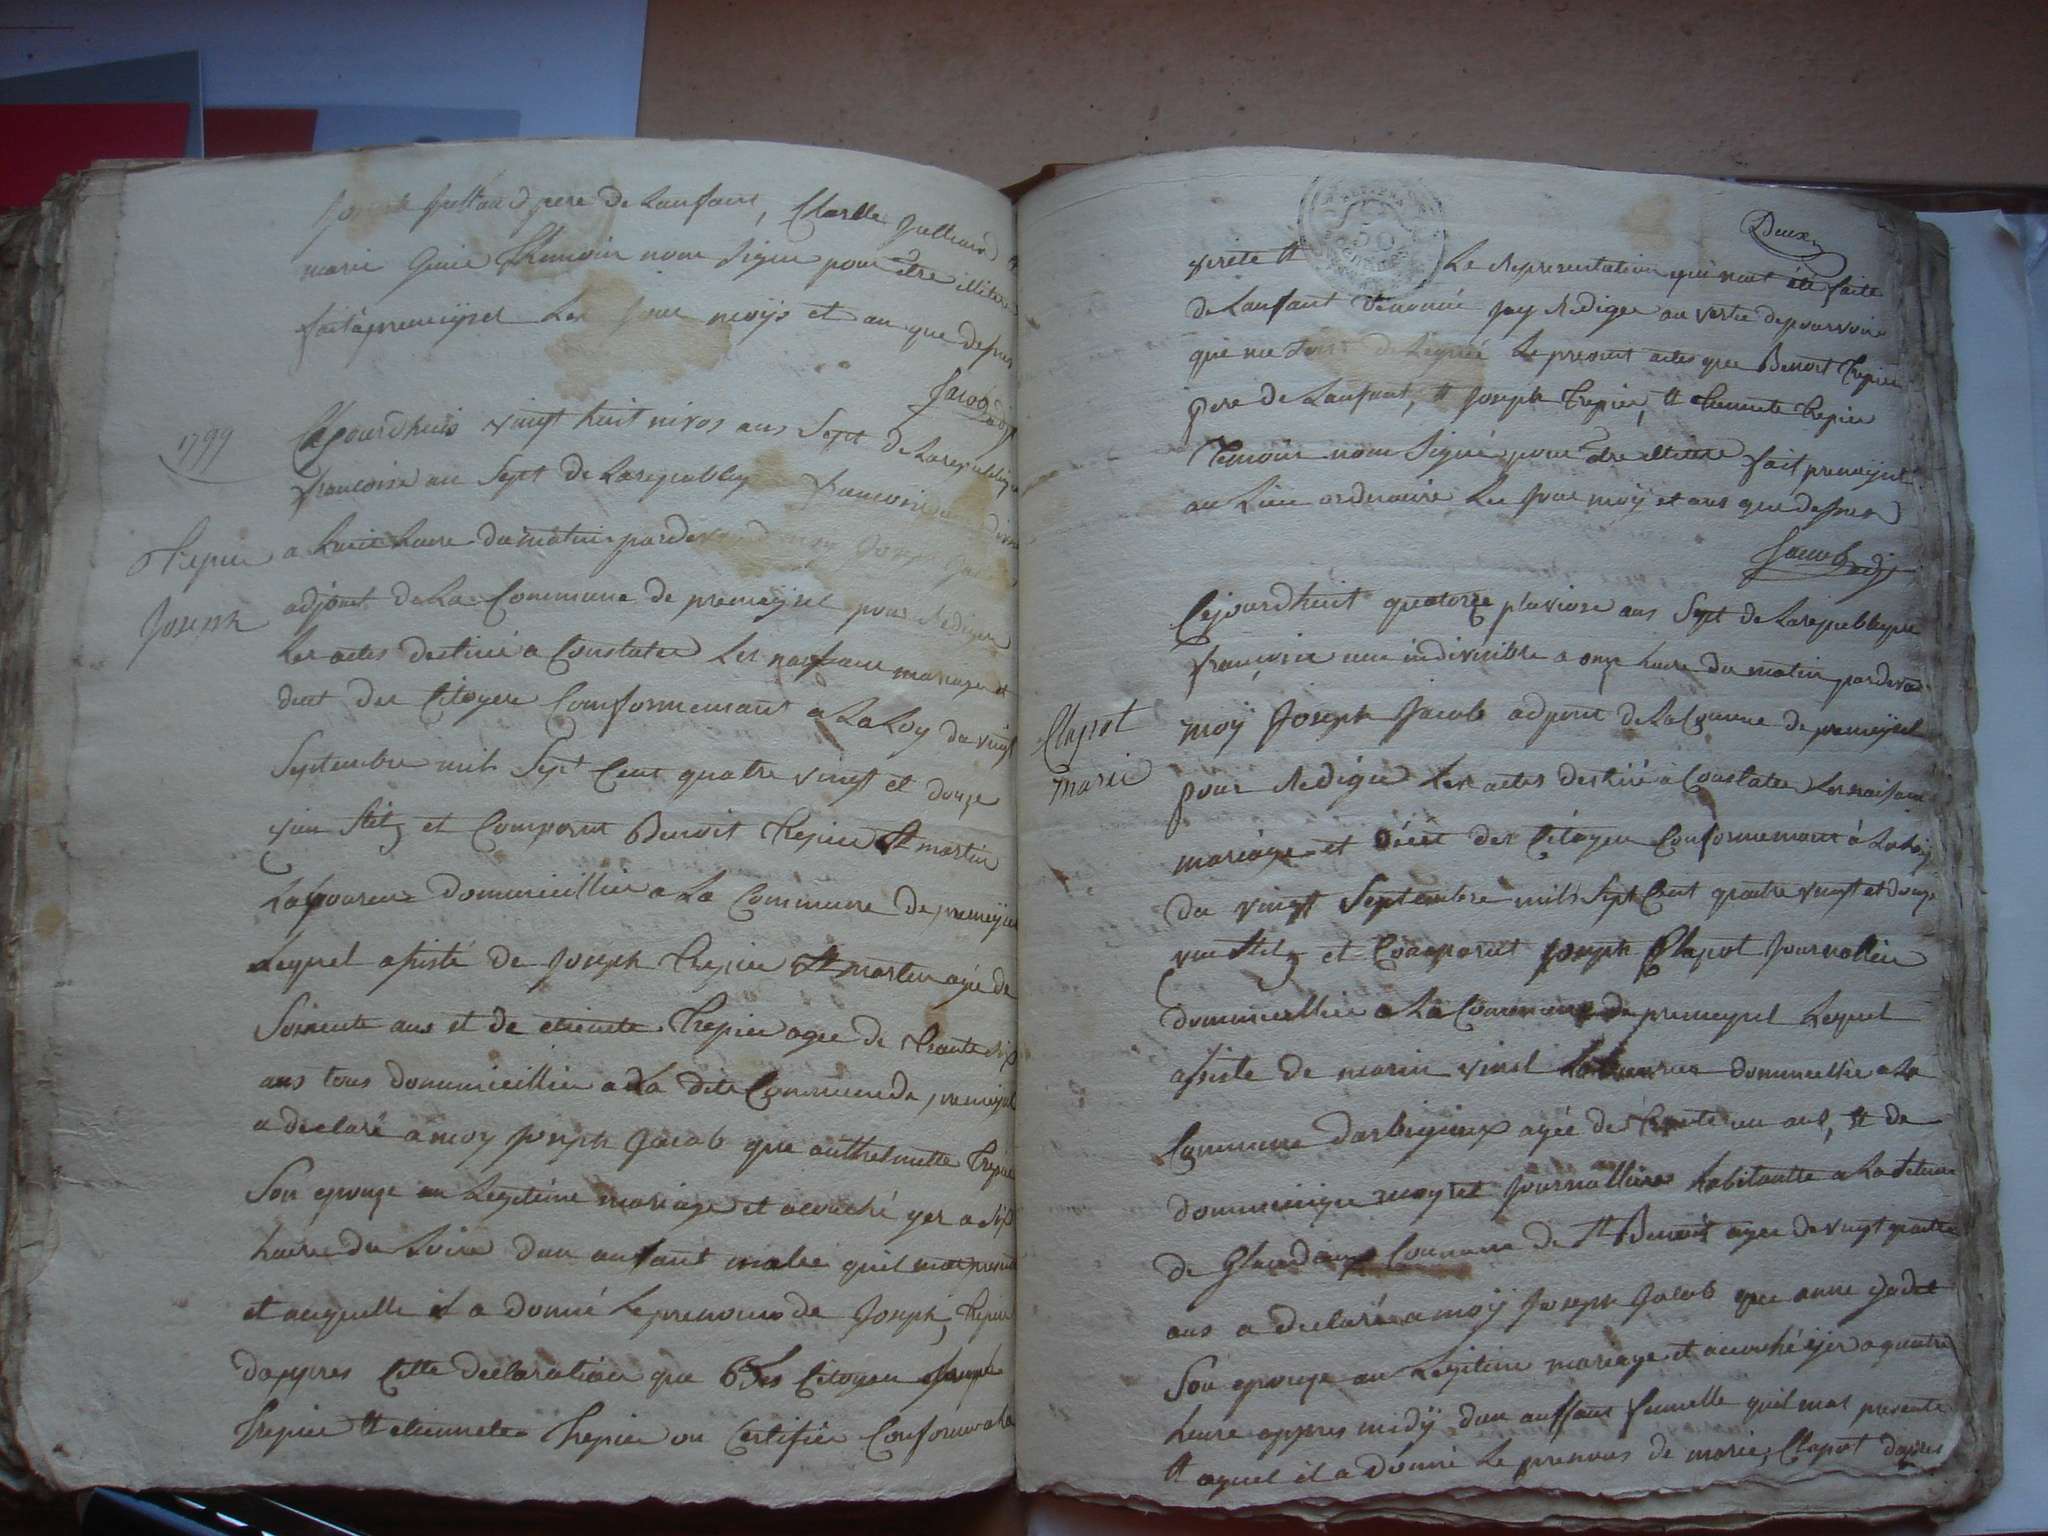 père de Lanfant, Claelle Julliard
marie temoin nom signee pour être illitere
fait a premeyzel Les Jour moÿs et an que desus
Jacob adj
1799
Cejourdhuis vingt huit nivos ans Sept de La republique
francoise an Sept de La republiq francoise
Trepier
a heure du matin pardevan moy Joseph
Joseph
adjoint de La Commune de premeyzel pour Rediger
Les actes destiné a Constater Les naissance mariage et
des Citoyens Conformemant a La Loy du vingt
Septembre mil Sept Cent quatre vingt et douze
vieu stil et Comparut Benoit Trepier St martin
Laboureur domicillier a La Commune de premeyzel
Lequel assisté de Joseph Trepier St martin agé de
Soisente ans et de etienete Trepier agee de trante six
ans tous domicillier a La dite Commune de premeyzel
a declaré a moy Joseph Jacob que anthelmette Trepier
Son epouze an Legitime mariage et acouché yer a six
heure du Soire dun anfant malle quil mat presenté
et auquelle il a donné Le prenom de Joseph, Trepier
dappres Cette declaration que Les Citoyen Joseph
Trepier et etiennete Trepier on Certifier Conforme a la
Deux
verite et La Representation qui mat été faite
de Lanfant denomé Jay Rediger au vertu des pouvoir
que me sont delegué Le present actes que Benoit Trepier
pere de Lanfant, et Joseph Trepier, et Etiennete Trepier
Temoin nom Signé pour être illitere fait premeyzel
au Lieu ordinaire Les Jour moÿ et ans que desus
Jacob adj
Cejourdhuit quatorze pluviose ans Sept de La republique
françoise une indivisible a onze heure du matin pardevan
Clapot
moÿ Joseph Jacob adjoint de La Commune de premeyzel
marie
pour Rediger Les actes destiné a Constater Les naissance
mariage et décès des Citoyen Conformemant à La Loy
du vingt Septembre mil Sept Cent quatre vingt et douze
vieu Stil et Comparut Joseph Clapot Journallier
domicillier a La Commune de premeyzel Lequel
assisté de marin vinet Laboureur domicillie a La
Commune darbigieux agée de trante un ans, et de
dominique moyret Journallier habitante a
de Glandieu Commune de St Benoit agee de vingt quatre
ans a declaré a moÿ Joseph Jacob que anne
Son epouze an Legitime mariage et acouché yer a quatre
heure appres midÿ dun anffant femelle quil mat presenté
et aquel il a donné Le prenom de marie, Clapot dappres